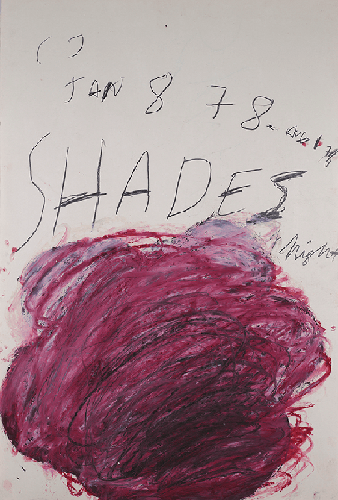 JAN 8 78
SHADES
Night